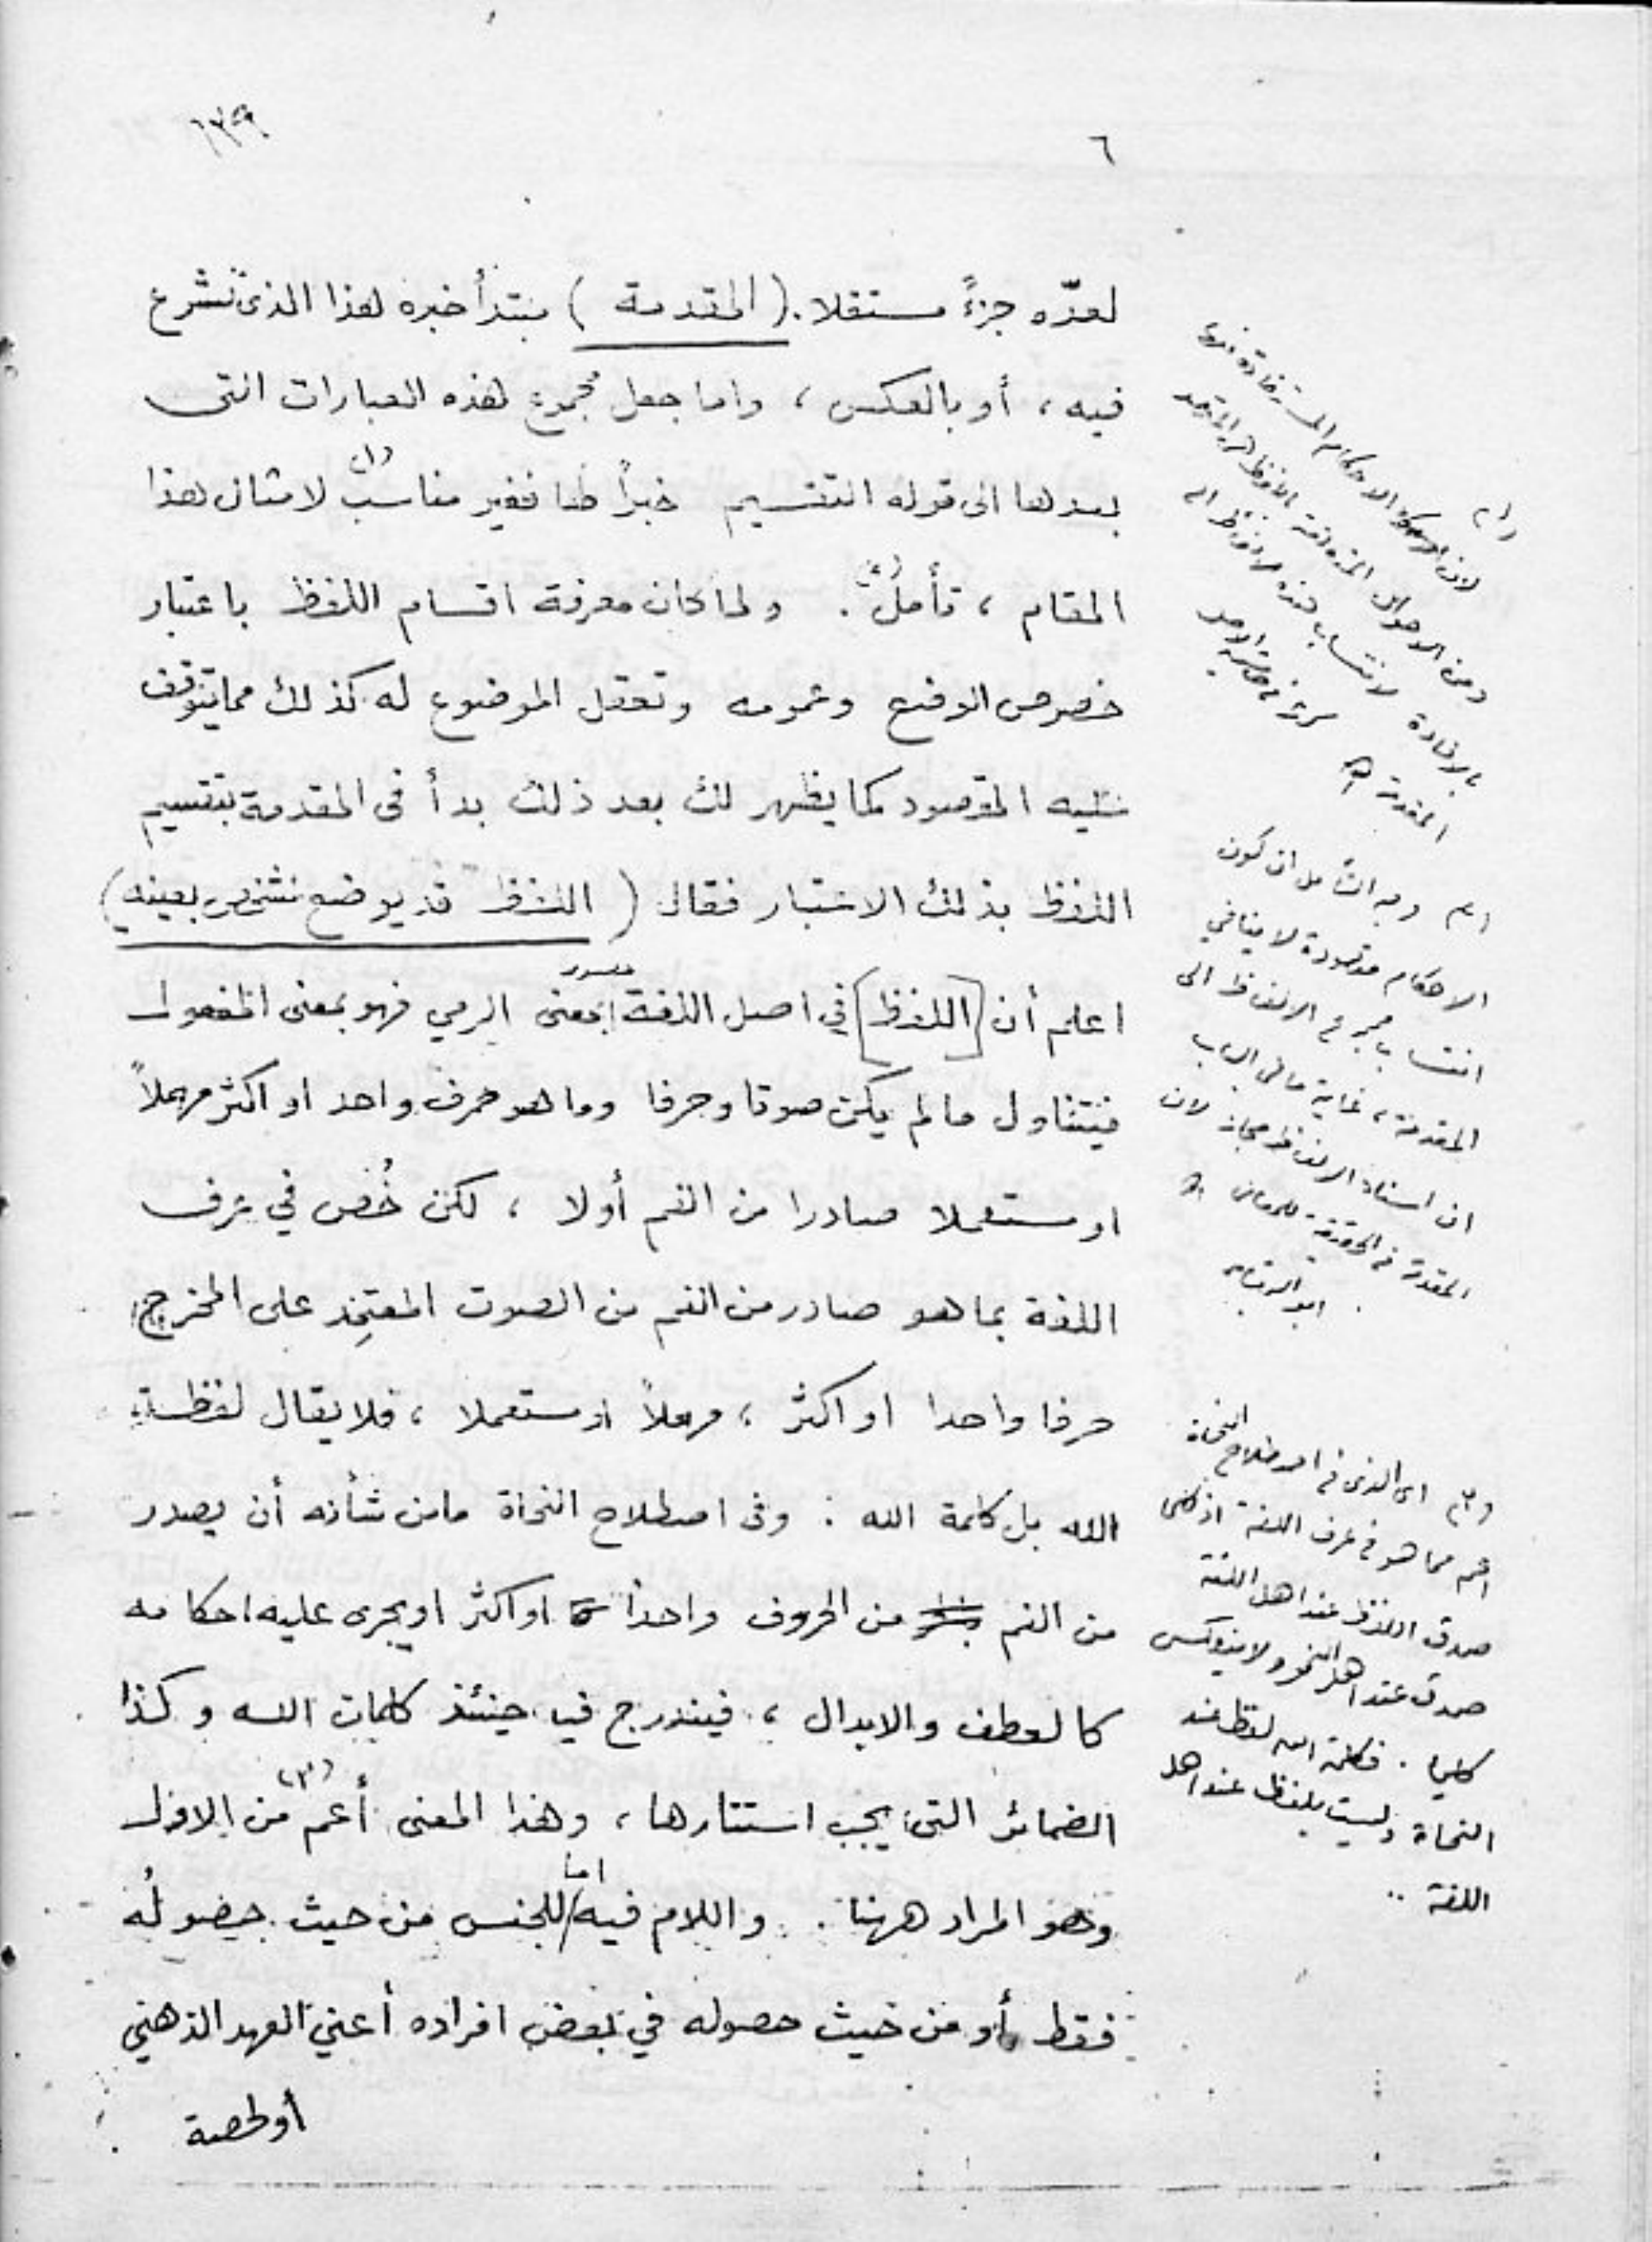 ٦
١٣٩
لعدّه جزءً مستقلا . ( المقدمة ) مبتدأ خبره هذا الذى نشرع
فيه ، أو بالعكس ، واما جعل مجموع هذه العبارات التى
بعدها الى قوله التقسيم خبراً لها فغير مناسب (١) لامثال هذا
المقام ، تأمل (٢) . ولما كان معرفة اقسام اللفظ باعتبار
خصوص الوضع وعمومه وتعقل الموضوع له كذلك مما يتوقف
عليه المقصود كما يظهر لك بعد ذلك بدأ فى المقدمة بتقسيم
اللفظ بذلك الاعتبار فقال ( اللفظ قد يوضع لشخص بعينه )
اعلم أن [اللفظ] في اصل اللغة مصدر بمعنى الرمي فهو بمعنى المفعول
فيتناول مالم يكن صوتا وحرفا وما هو حرف واحد او اكثر مهملاً
او مستعملا صادرا من الفم أولا ، لكن خُص في عرف
اللغة بما هو صادر من الفم من الصوت المعتمِد على المخرج ،
حرفا واحدا او اكثر ، مهملاً او مستعملا ، فلا يقال لفظة
الله بل كلمة الله : وفى اصطلاح النحاة مامن شأنه أن يصدر
من الفم من الحروف واحداً او اكثر او يجرى عليه احكامه
كالعطف والابدال ، فيندرج فيه حينئذ كلمات الله وكذا
الضمائر التى يجب استتارها ، وهذا المعنى أعم (٣) من الاول
وهو المراد ههنا . واللام فيه اما للجنس من حيث حصولُه
فقط أو من حيث حصوله في بعض افراده أعني العهد الذهني
أولحصة
(١)
لان الاحكام المستفادة
ومن الاحوال
بالافادة لانتساب هذه الالفاظ الى
المقدمة
(٢) وجه التأمل ان كون
الاحكام مقصودة لا ينافي
انتساب مجموع الالفاظ الى
المقدمة ، غاية ما فى الباب
ان اسناد الالفاظ مجاز لان
المقدمة في الحقيقة للمعانى
ابو البقاء
(٣) اى الذى في اصطلاح النحاة
اعم مما هو في عرف اللغة اذ كلما
صدق اللفظ عند اهل اللغة
صدق عند اهل النحو ولا ينعكس
كليا . فكلمة الله لفظ عند
النحاة وليست بلفظ عند اهل
اللغة ..